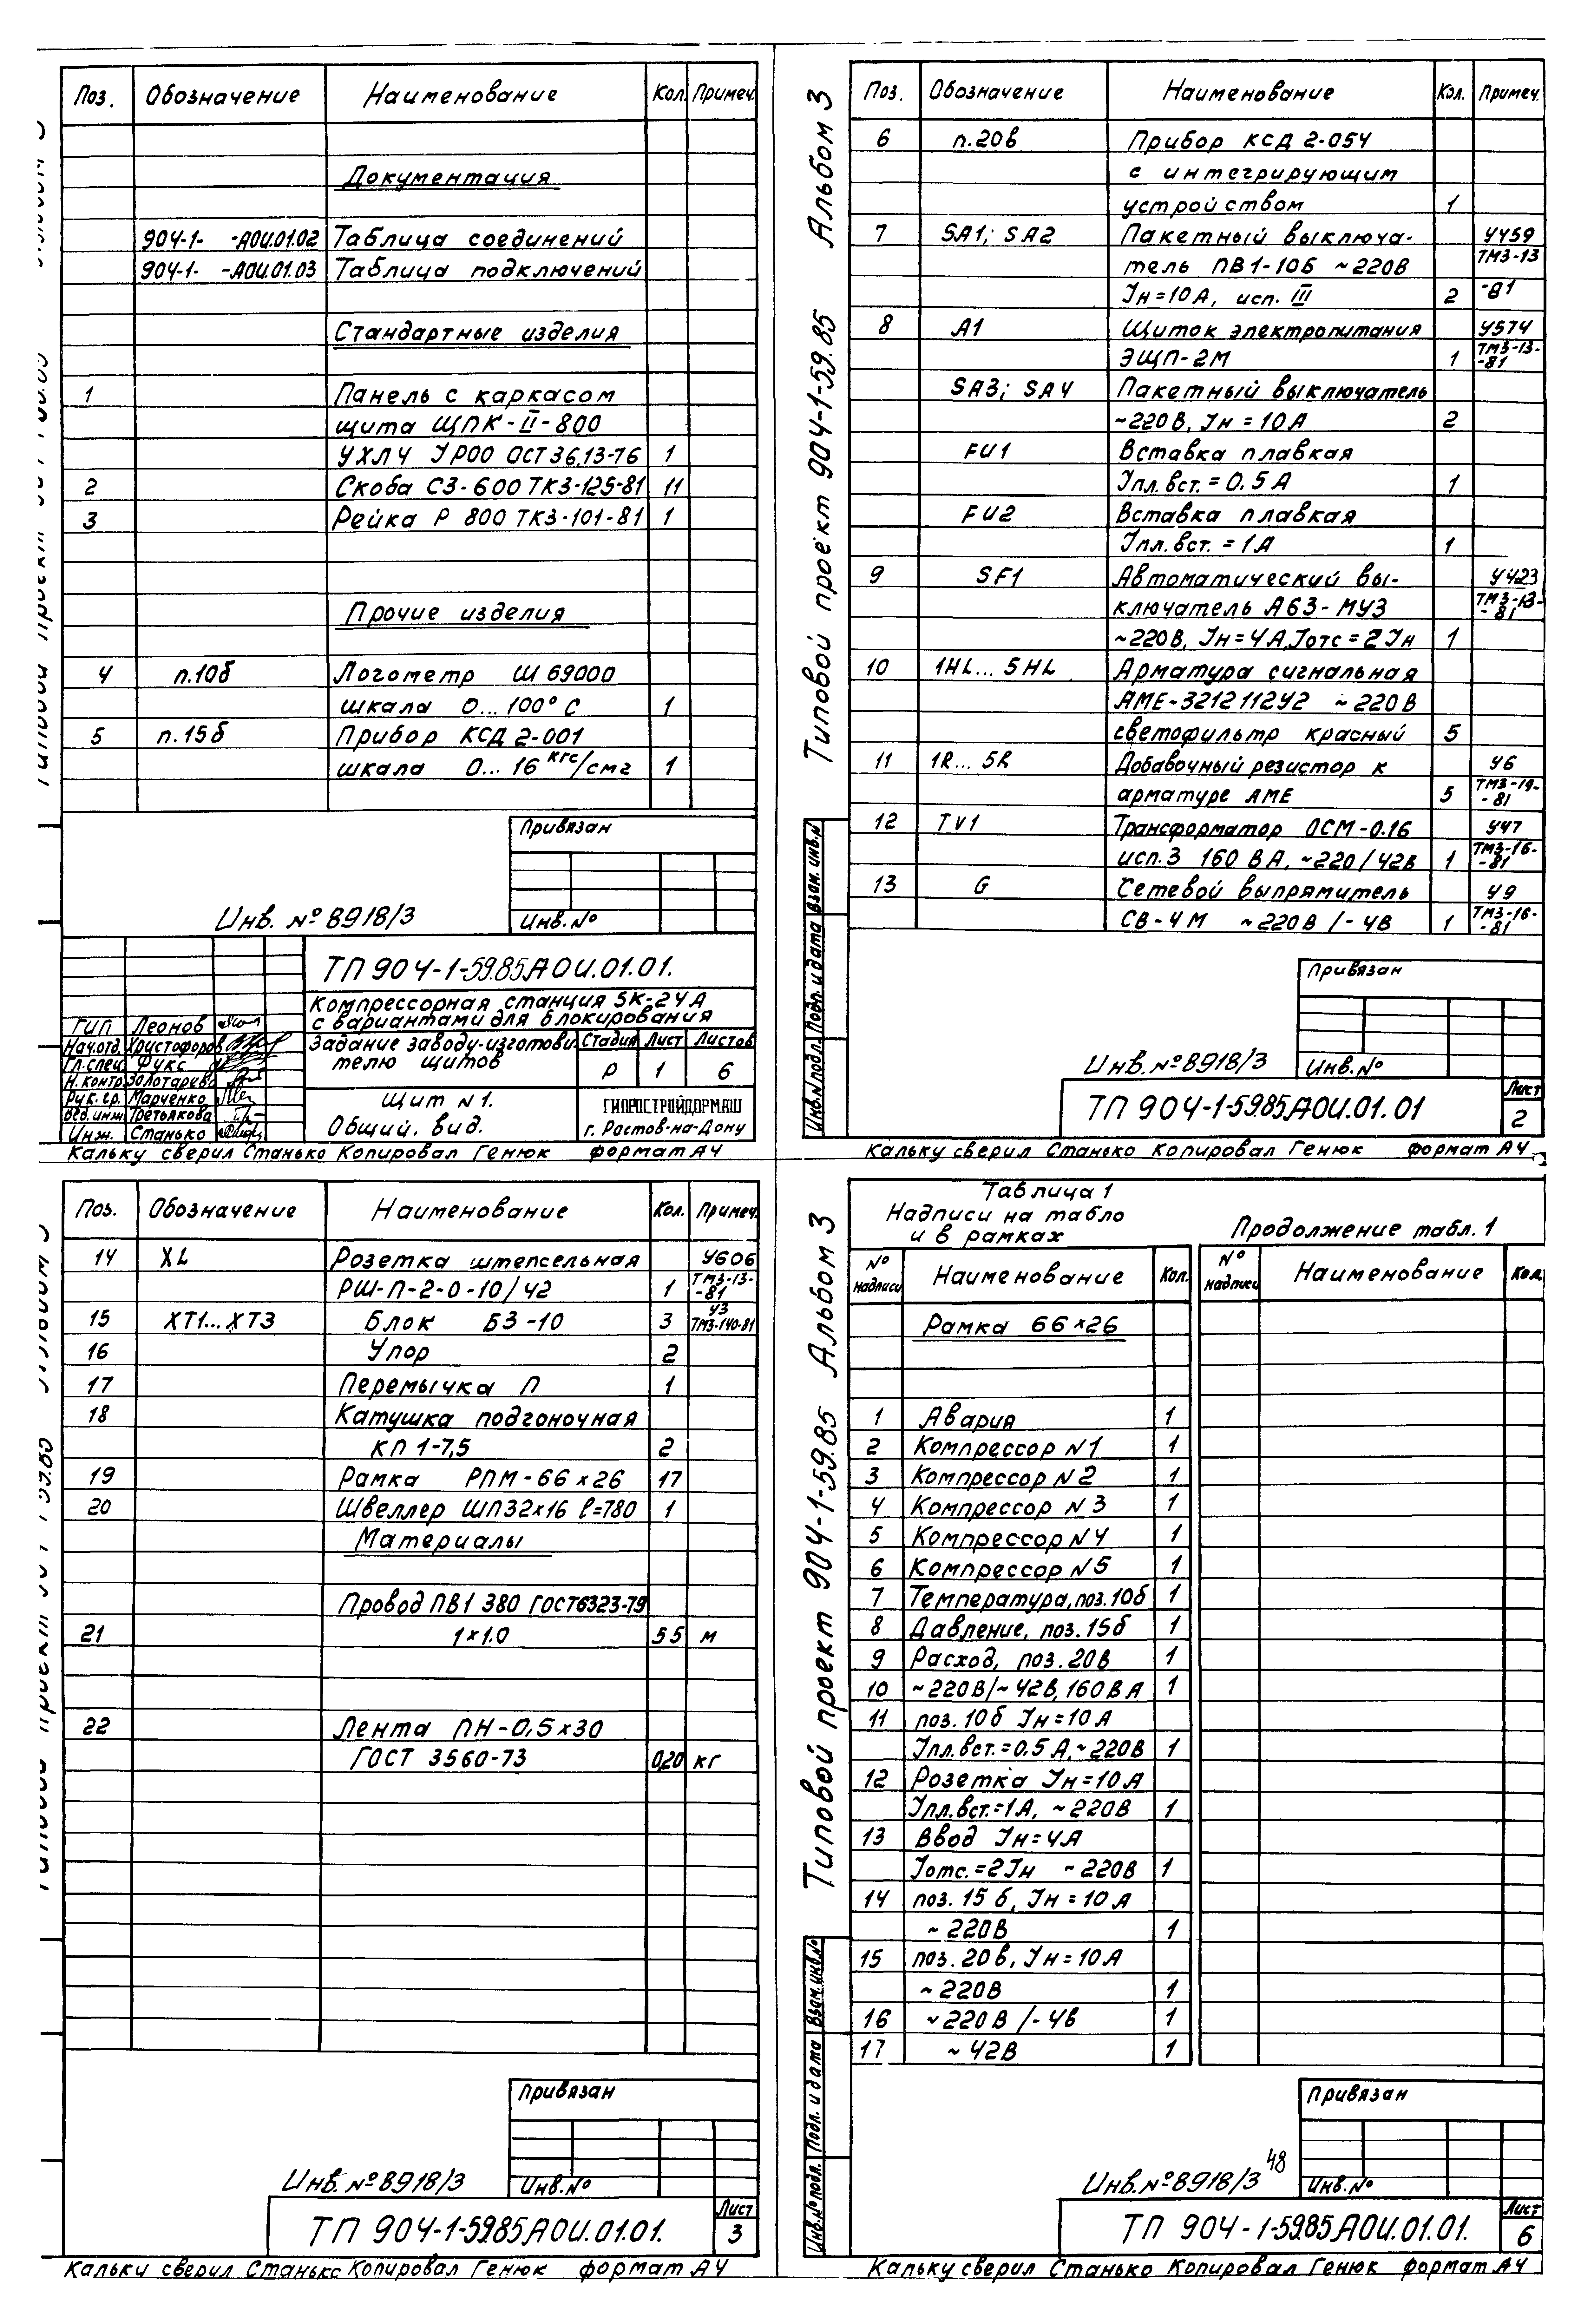 Поз. Обозначение Наименование Кол. Примеч.
Документация
904-1- -АОИ.01.02 Таблица соединений
904-1- -АОИ.01.03 Таблица подключений
Стандартные изделия
1 Панель с каркасом
щита ЩПК-II-800
УХЛ4 УР00 ОСТ 36.13-76 1
2 Скоба С3-600 ТК3-125-81 11
3 Рейка Р 800 ТК3-101-81 1
Прочие изделия
4 п.10б Логометр Ш 69000
шкала 0...100°С 1
5 п.15б Прибор КСД 2-001
шкала 0...16 кгс/см2 1
Привязан
Инв.№
Инв. №8918/3
ТП 904-1-59.85 АОИ.01.01.
Компрессорная станция 5К-24А
с вариантами для блокирования
ГИП Леонов
Нач.отд. Христофоров
Гл.спец. Фукс
Н.контр. Золотарева
Рук.гр. Марченко
Вед.инж. Третьякова
Инж. Станько
Задание заводу-изготови-
телю щитов
Стадия Лист Листов
Р 1 6
Щит N1.
Общий. вид.
ГИПРОСТРОЙДОРМАШ
г. Ростов-на-Дону
Кальку сверил Станько Копировал Генюк формат А4
Типовой проект 904-1-59.85 Альбом 3
Поз. Обозначение Наименование Кол. Примеч.
6 п.20в Прибор КСД 2-054
с интегрирующим
устройством 1
7 SA1; SA2 Пакетный выключа- У459
тель ПВ1-10Б ~220В ТМ3-13
Iн=10А, исп. III 2 -81
8 А1 Щиток электропитания У574
ЭЩП-2М 1 ТМ3-13-
-81
SA3; SA4 Пакетный выключатель
~220В, Iн=10А 2
FU1 Вставка плавкая
Iпл.вст.=0.5А 1
FU2 Вставка плавкая
Iпл.вст.=1А 1
9 SF1 Автоматический вы- У423
ключатель А63-МУ3 ТМ3-13-
-81
~220В, Iн=4А, Iотс=2Iн 1
10 1HL...5HL Арматура сигнальная
АМЕ-3212112У2 ~220В
светофильтр красный 5
11 1R...5R Добавочный резистор к У6
арматуре АМЕ 5 ТМ3-19-
-81
12 TV1 Трансформатор ОСМ-0.16 У47
исп.3 160 ВА, ~220/42в 1 ТМ3-16-
-81
13 G Сетевой выпрямитель У9
СВ-4М ~220В/-4В 1 ТМ3-16-
-81
Привязан
Инв.№
Инв.№8918/3
Инв.N подл. Подп. и дата Взам. инв.N
ТП 904-1-59.85 АОИ.01.01
Лист
2
Кальку сверил Станько Копировал Генюк формат А4
Поз. Обозначение Наименование Кол. Примеч.
14 XL Розетка штепсельная У606
РШ-П-2-0-10/42 1 ТМ3-13-
-81
15 ХТ1...ХТ3 Блок Б3-10 3 У3
ТМ3-140-81
16 Упор 2
17 Перемычка П 1
18 Катушка подгоночная
КП 1-7,5 2
19 Рамка РПМ-66×26 17
20 Швеллер ШП32×16 l=780 1
Материалы
Провод ПВ1 380 ГОСТ6323-79
21 1×1.0 55 м
22 Лента ПН-0,5×30
ГОСТ 3560-73 0,20 кг
Привязан
Инв.№
Инв.№8918/3
ТП 904-1-59.85 АОИ.01.01.
Лист
3
Кальку сверил Станько Копировал Генюк формат А4
Типовой проект 904-1-59.85 Альбом 3
Таблица 1
Надписи на табло
и в рамках
Продолжение табл. 1
№ надписи Наименование Кол.
№ надписи Наименование Кол.
Рамка 66×26
1 Авария 1
2 Компрессор N1 1
3 Компрессор N2 1
4 Компрессор N3 1
5 Компрессор N4 1
6 Компрессор N5 1
7 Температура, поз.10б 1
8 Давление, поз.15б 1
9 Расход, поз.20в 1
10 ~220В/~42В, 160ВА 1
11 поз.10б Iн=10А
Iпл.вст.=0.5А, ~220В 1
12 Розетка Iн=10А
Iпл.вст.=1А, ~220В 1
13 Ввод Iн=4А
Iотс.=2Iн ~220В 1
14 поз. 15б, Iн=10А
~220В 1
15 поз.20в, Iн=10А
~220В 1
16 ~220В/-4в 1
17 ~42В 1
Привязан
Инв.№
Инв.№8918/3
48
Инв.№ подл. Подп. и дата Взам.инв.№
ТП 904-1-59.85 АОИ.01.01.
Лист
6
Кальку сверил Станько Копировал Генюк формат А4